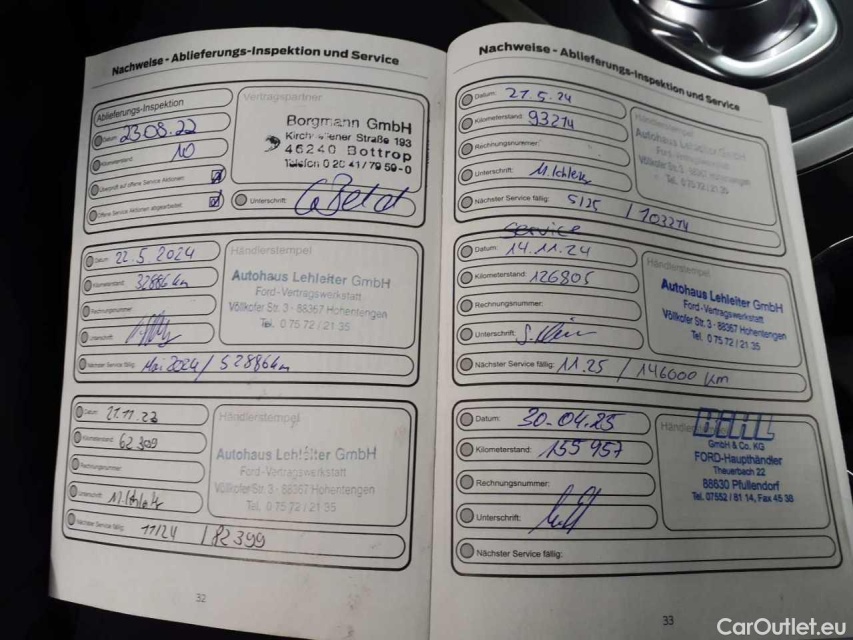 Nachweise - Ablieferungs-Inspektion und Service
Ablieferungs-Inspektion
Datum: 23.08.22
Kilometerstand: 10
Überprüft auf offene Service Aktionen:
Offene Service Aktionen abgearbeitet:
Vertragspartner
Borgmann GmbH
Straße 193
46240 Bottrop
Telefon 0 20 41/79 59-0
Unterschrift:
Datum: 22.5 2024
Kilometerstand: 32886 km
Rechnungsnummer:
Unterschrift:
Nächster Service fällig: Mai 2024 / 52886 km
Händlerstempel
Autohaus Lehleiter GmbH
Ford-Vertragswerkstatt
Völlkofer Str. 3 · 88367 Hohentengen
Tel. 0 75 72 / 21 35
Datum: 21.11.23
Kilometerstand: 62 399
Rechnungsnummer:
Unterschrift:
Nächster Service fällig: 11/24 / 82 399
Händlerstempel
Autohaus Lehleiter GmbH
Ford-Vertragswerkstatt
Völlkofer Str. 3 · 88367 Hohentengen
Tel. 0 75 72 / 21 35
32
Nachweise - Ablieferungs-Inspektion und Service
Datum: 27.5.24
Kilometerstand: 93274
Rechnungsnummer:
Unterschrift:
Nächster Service fällig: 5/25 / 103274
Händlerstempel
Autohaus Lehleiter GmbH
Ford-Vertragswerkstatt
Völlkofer Str. 3 · 88367 Hohentengen
Tel. 0 75 72 / 21 35
Service
Datum: 14.11.24
Kilometerstand: 126805
Rechnungsnummer:
Unterschrift:
Nächster Service fällig: 11.25 / 146000 km
Händlerstempel
Autohaus Lehleiter GmbH
Ford-Vertragswerkstatt
Völlkofer Str. 3 · 88367 Hohentengen
Tel. 0 75 72 / 21 35
Datum: 30.04.25
Kilometerstand: 155 957
Rechnungsnummer:
Unterschrift:
Nächster Service fällig:
Händlerstempel
BIHL
GmbH & Co. KG
FORD-Haupthändler
Theuerbach 22
88630 Pfullendorf
Tel. 07552 / 81 14, Fax 45 38
33
CarOutlet.eu